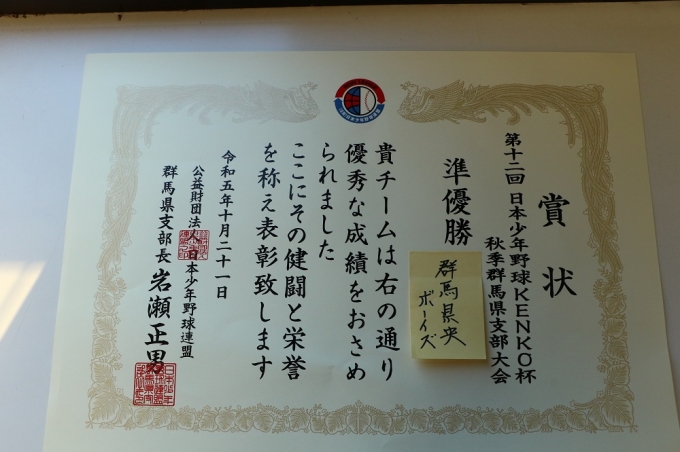 賞状
第十二回 日本少年野球KENKO杯
秋季群馬県支部大会
準優勝
群馬県央
ボーイズ
貴チームは右の通り
優秀な成績をおさめ
られました
ここにその健闘と栄誉
を称え表彰致します
令和五年十月二十一日
公益財団法人日本少年野球連盟
群馬県支部長 岩瀬正男